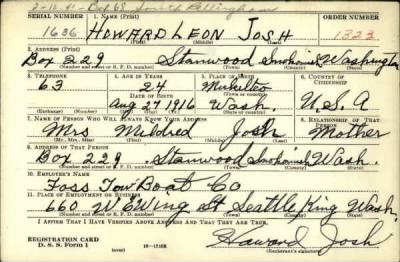 2-12-41-Box 68 South Bellingham
SERIAL NUMBER 1. NAME (Print) ORDER NUMBER
1636 HOWARD LEON JOSH 1323
(First) (Middle) (Last)
2. ADDRESS (Print)
Box 229 Stanwood Snohomish Washington
(Number and street or R. F. D. number) (Town) (County) (State)
3. TELEPHONE 4. AGE IN YEARS 5. PLACE OF BIRTH 6. COUNTRY OF CITIZENSHIP
63 24 Mukilteo
DATE OF BIRTH
Aug 27 1916 Wash. U.S.A
(Exchange) (Number) (Mo.) (Day) (Yr.) (State or country)
7. NAME OF PERSON WHO WILL ALWAYS KNOW YOUR ADDRESS 8. RELATIONSHIP OF THAT PERSON
Mrs Mildred Josh Mother
(Mr., Mrs., Miss) (First) (Middle) (Last)
9. ADDRESS OF THAT PERSON
Box 229 Stanwood Snohomish Wash.
(Number and street or R. F. D. number) (Town) (County) (State)
10. EMPLOYER'S NAME
Foss Tow Boat Co
11. PLACE OF EMPLOYMENT OR BUSINESS
660 W EWing St Seattle King Wash.
(Number and street or R. F. D. number) (Town) (County) (State)
I AFFIRM THAT I HAVE VERIFIED ABOVE ANSWERS AND THAT THEY ARE TRUE.
REGISTRATION CARD
D. S. S. Form 1 (over) 16-17105 Howard Josh
(Registrant's signature)